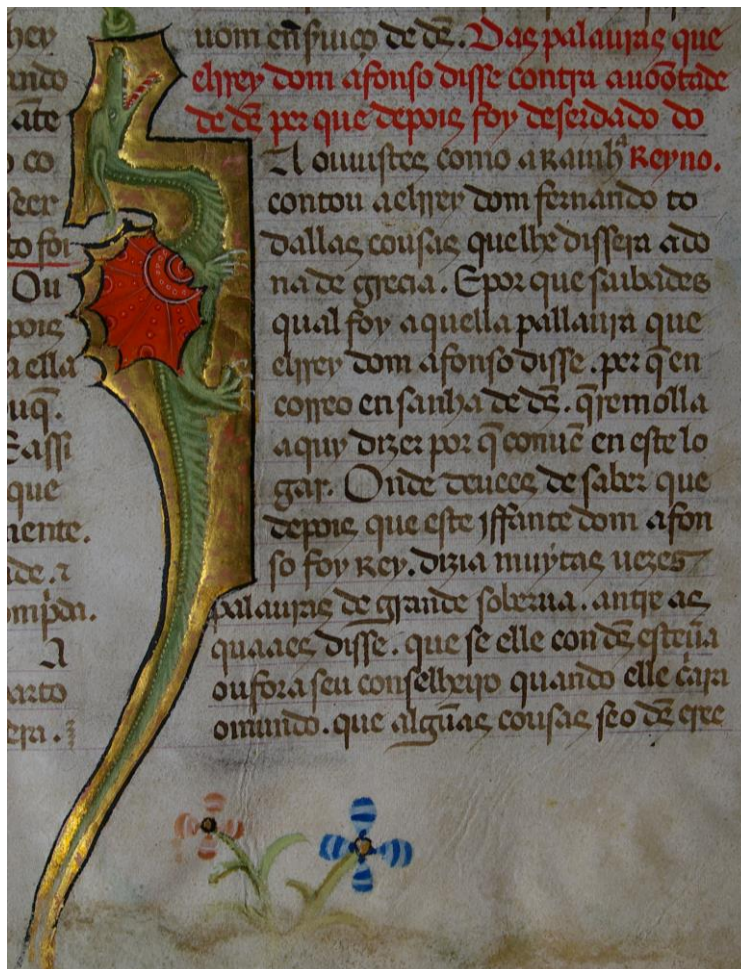 hey
ando
ate
o co
secr
to foi
Ou
pois
a ella
uq̃.
E assi
que
mente.
ade. ⁊
omp̃da.
A
parto
era.
uom en s̃uiço de dẽ. Das palauras que
elrrey dom afonso disse contra a uoontade
de dẽ per que depois foy deserdado do
A ouuistes como a Rainhª Reyno.
contou a elrrey dom fernando to
dallas cousas que lhe dissera a do
na de grecia. E por que saibades
qual foy aquella pallaura que
elrrey dom afonso disse. per q̃ en
correo en sanha de dẽ. q̃remolla
aquy dizer por q̃ conuẽ en este lo
gar. Onde deuees de saber que
depois que este iffante dom afon
so foy Rey. dizia muytas uezes
palauras de grande soberua. antre as
quaaes disse. que se elle con dẽ esteũa
ou fora seu conselheyro quando elle c̃ara
o mundo. que algũas cousas se o dẽ cree